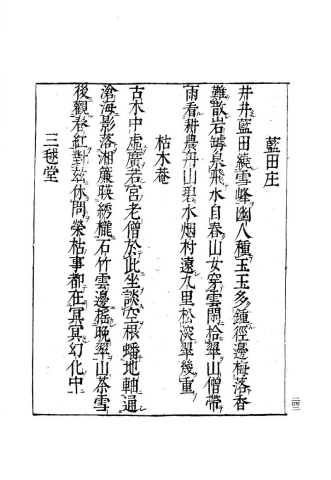 藍田庄
井井藍田繞雪峰幽人種玉玉多鍾徑邊梅落香
難散岩罅泉飛水自舂山女穿雲閑拾翠山僧帶
雨看耕農丹山碧水烟村遠九里松深翠幾重
枯木菴
古木中虛廣若宮老僧於此坐談空根蟠地軸通
滄海影落湘簾映綉櫳石竹雲邊搖晚翠山茶雪
後觀春紅對茲休問榮枯事都在冥冥幻化中
三毬堂
二四三